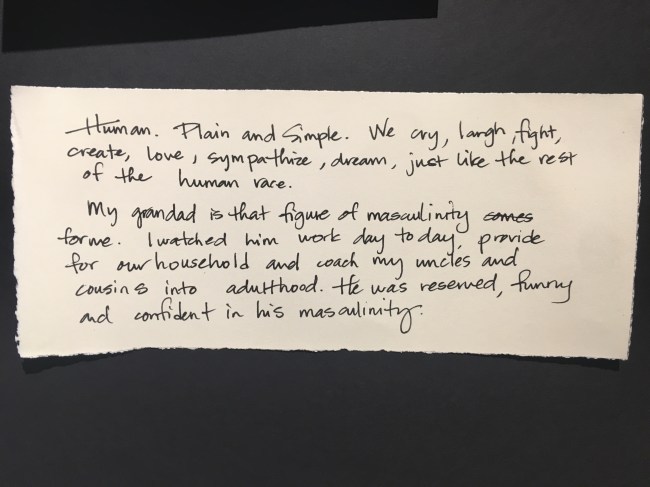 Human. Plain and Simple. We cry, laugh, fight,
create, love, sympathize, dream, just like the rest
of the human race.
My grandad is that figure of masculinity comes
for me. I watched him work day to day, provide
for our household and coach my uncles and
cousins into adulthood. He was reserved, funny
and confident in his masculinity.